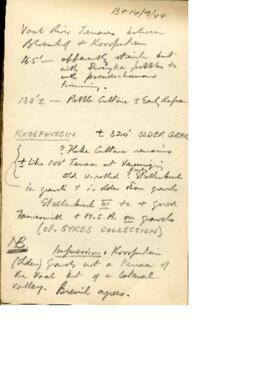 B+ 14/9/44
Vaal River Terraces between
Bloemhof & Koosfontein
165' — apparently sterile but
with Dwyka pebbles &c
with pseudo-human
trimming.
130' ± — Pebble Culture ± Early Kafuan
KOSEFONTEIN ± 320' OLDER GRAV
? Flake Culture remains
± Like 100' Terrace at Vereeniging
old v. rolled ? Stellenbosch
in gravels & is older than gravels
Stellenbosch III &c & good
& M.S.A. on gravels
(cf. SYKES COLLECTION)
NB Impression & Koosfontein
(Older) Gravels not a Terrace of
the Vaal but of a lateral
valley. Breuil agrees.